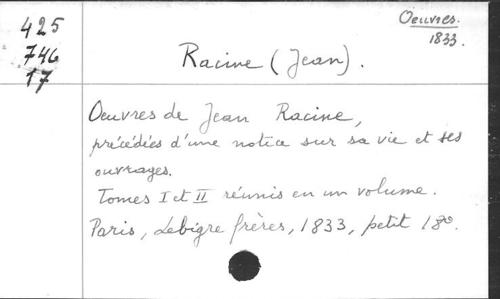 425
746
17
Oeuvres.
1833.
Racine (Jean).
Oeuvres de Jean Racine,
précédées d'une notice sur sa vie et ses
ouvrages.
Tomes I et II réunis en un volume.
Paris, Lebigre frères, 1833, petit 18º.